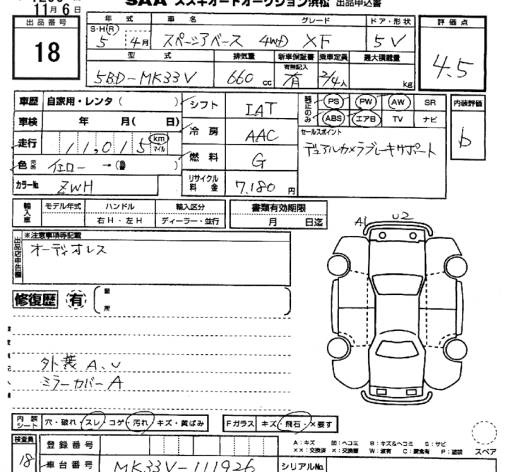 11月6日
SAA スズキオートオークション浜松 出品申込書
出品番号 年式 車名 グレード ドア・形状 評価点
18 S・H・R 5年 4月 スペーシアベース 4WD XF 5V 4.5
型式 排気量 新車保証書 乗車定員 最大積載量
5BD-MK33V 660cc 有 2/4人 kg
車歴 自家用・レンタ( ) シフト IAT PS PW AW SR 内装評価
車検 年 月( 日) 冷房 AAC ABS エアB TV ナビ b
走行 11,015 km マイル 燃料 G セールスポイント
色 イエロー→( ) リサイクル料金 7,180円 デュアルカメラブレーキサポート
カラーNo. ZWH
輸入車 モデル年式 ハンドル 輸入区分 書類有効期限
右H・左H ディーラー・並行 月 日迄
※注意事項等記載
出品店申告欄 オーディオレス
A1 U2
修復歴 有 箇所
外装 A、U
ミラーカバー A
内装シート 穴・破れ・スレ・コゲ・汚れ・キズ・黄ばみ Fガラス キズ・飛石・×要す
検査員 18 登録番号 A:キズ 凹:ヘコミ B:キズ&ヘコミ S:サビ スペア
車台番号 MK33V-111926 シリアルNo.